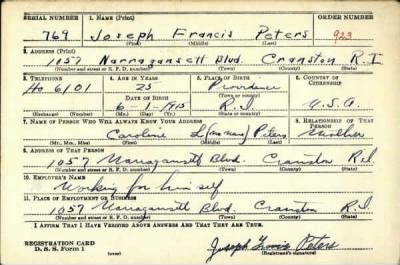 SERIAL NUMBER 1. NAME (Print) ORDER NUMBER
769 Joseph Francis Peters 923
(First) (Middle) (Last)
2. ADDRESS (Print)
1057 Narragansett Blvd. Cranston R.I
(Number and street or R. F. D. number) (Town) (County) (State)
3. TELEPHONE 4. AGE IN YEARS 5. PLACE OF BIRTH 6. COUNTRY OF CITIZENSHIP
Ho 6101 25 Providence
DATE OF BIRTH (Town or county)
6-1-1915 R.I. U.S.A.
(Exchange) (Number) (Mo.) (Day) (Yr.) (State or country)
7. NAME OF PERSON WHO WILL ALWAYS KNOW YOUR ADDRESS 8. RELATIONSHIP OF THAT PERSON
Caroline L Peters Mother
(Mr., Mrs., Miss) (First) (Middle) (Last)
9. ADDRESS OF THAT PERSON
1057 Narragansett Blvd. Cranston R.I.
(Number and street or R. F. D. number) (Town) (County) (State)
10. EMPLOYER'S NAME
Working for him self
11. PLACE OF EMPLOYMENT OR BUSINESS
1057 Narragansett Blvd. Cranston R.I.
(Number and street or R. F. D. number) (Town) (County) (State)
I AFFIRM THAT I HAVE VERIFIED ABOVE ANSWERS AND THAT THEY ARE TRUE.
REGISTRATION CARD
D. S. S. Form 1 (over) Joseph Francis Peters
(Registrant's signature)